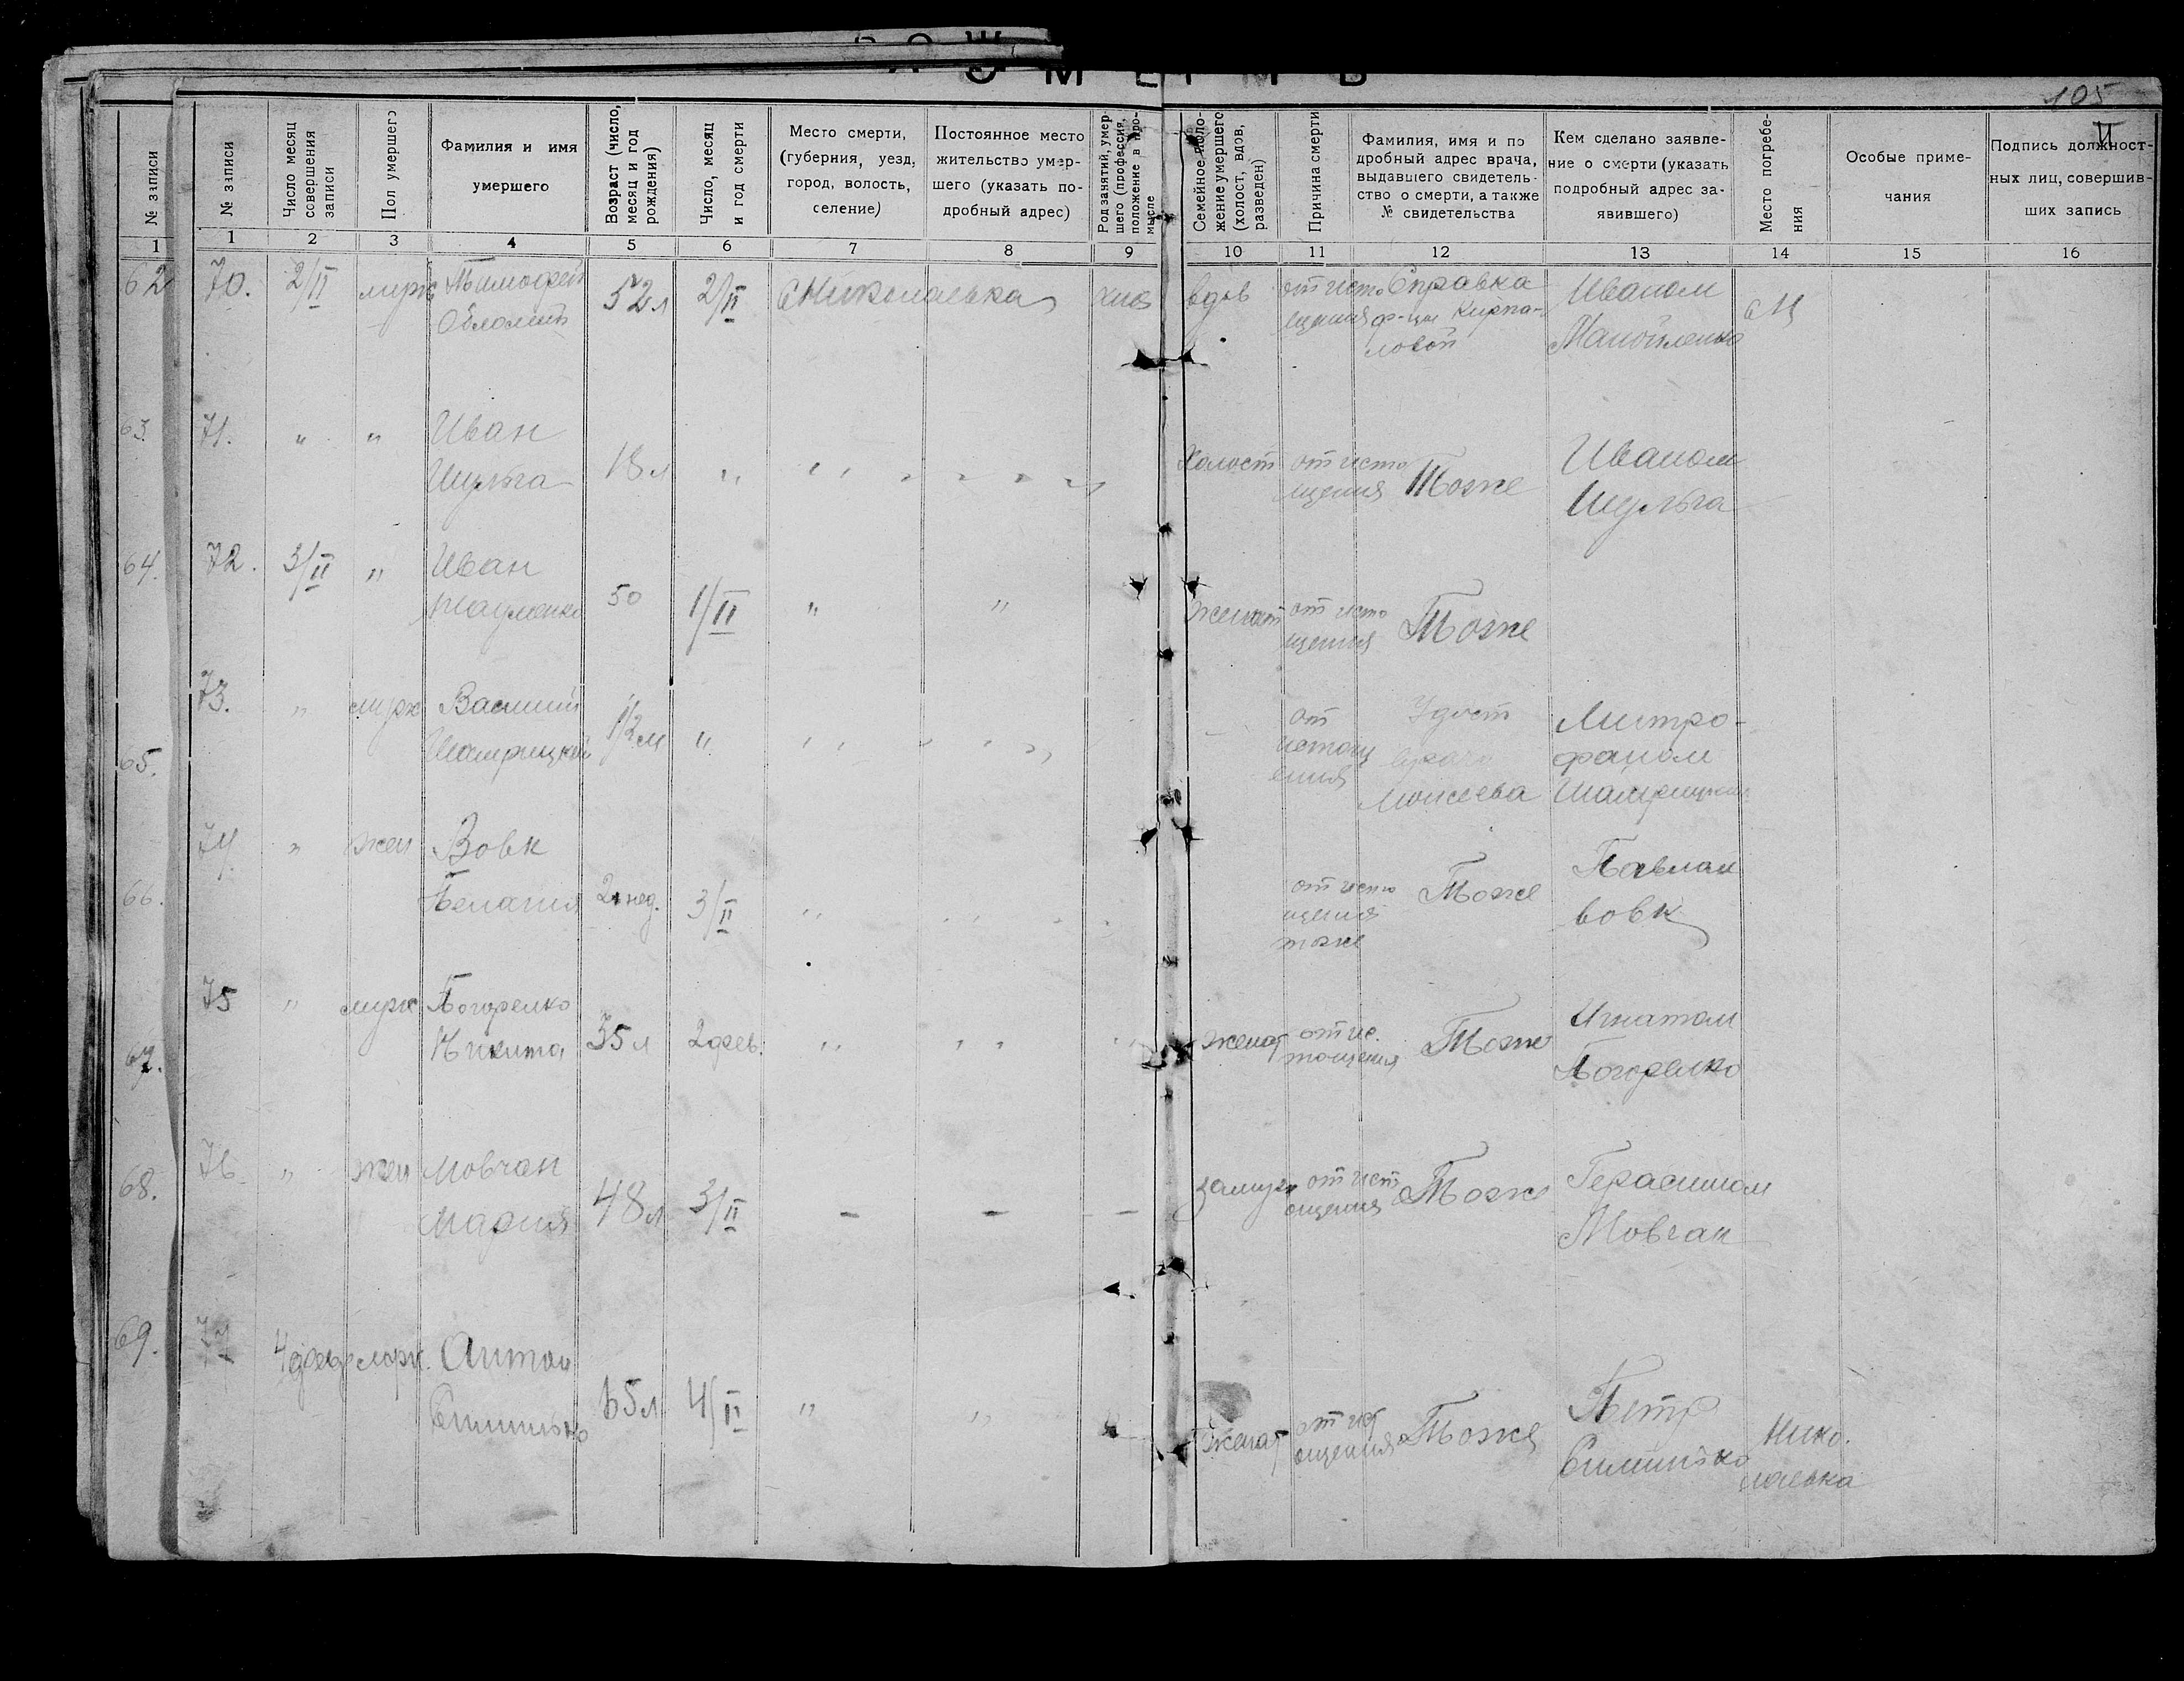 105
II
№ записи
№ записи
Число месяц
совершения
записи
Пол умершего
Фамилия и имя
умершего
Возраст (число,
месяц и год
рождения)
Число, месяц
и год смерти
Место смерти,
(губерния, уезд,
город, волость,
селение)
Постоянное место
жительство умер-
шего (указать по-
дробный адрес)
Род занятий, умер-
шего (профессия,
положение в про-
мысле
Семейное поло-
жение умершего
(холост, вдов,
разведен)
Причина смерти
Фамилия, имя и по
дробный адрес врача,
выдавшего свидетель-
ство о смерти, а также
№ свидетельства
Кем сделано заявле-
ние о смерти (указать
подробный адрес за-
явившего)
Место погребе-
ния
Особые приме-
чания
Подпись должност-
ных лиц, совершив-
ших запись
1 1 2 3 4 5 6 7 8 9 10 11 12 13 14 15 16
62
70. 2/II муж Тимофей
52 л 2/II с Николаевка
вдов от исто
щения
Справка
ф-цы Кирпа-
ловой
Иваном
Манойленко
63.
71. " " Иван
Шульга
18 л "
Холост от исто
щения
Тоже
Иваном
Шульга
64.
72. 3/II " Иван
50 1/II " "
женат от исто
щения
Тоже
65.
73. " муж Василий
1/2 м "
от
истощ
ения
Удост
врача
Моисеева
Митро-
фаном
66.
74. " жен Вовк
Пелагия
2 нед. 3/II "
от исто
щения
тоже
Тоже
Павлом
Вовк
67.
75 " муж Погорелко
Никита
35 л 2 фев. " "
женат от ис.
тощения
Тоже
Игнатом
Погорелко
68.
76. " жен Мовчан
Мария
48 л 3/II - - -
замуж от ист
ощения
Тоже
Герасимом
Мовчан
69.
77 4 фев муж. Антон
65 л 4/II " "
женат от ист
ощения
Тоже
Петр
Нико.
лаевка